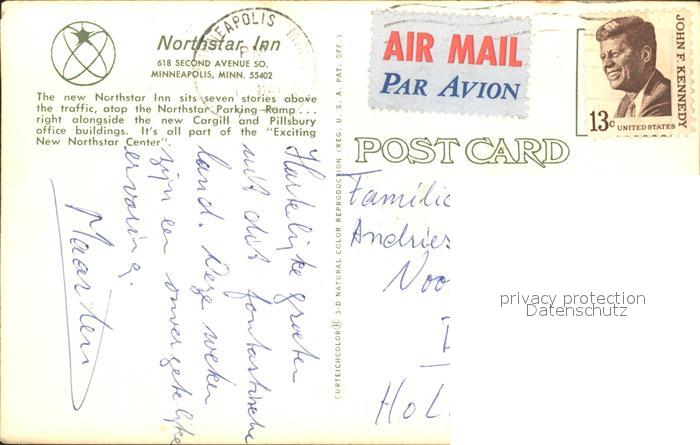 Northstar Inn
618 SECOND AVENUE SO.
MINNEAPOLIS, MINN. 55402
The new Northstar Inn sits seven stories above
the traffic, atop the Northstar Parking Ramp...
right alongside the new Cargill and Pillsbury
office buildings. It's all part of the "Exciting
New Northstar Center".
MINNEAPOLIS MINN
AIR MAIL
PAR AVION
JOHN F. KENNEDY
13c UNITED STATES
POST CARD
CURTEICHCOLOR® 3-D NATURAL COLOR REPRODUCTION (REG. U.S.A. PAT. OFF.)
Hartelijke groeten
uit dit fantastische
land. Deze weken
zijn een onvergetelijke
ervaring.
Maarten
Familie
Andries
Noo
HoL
privacy protection
Datenschutz